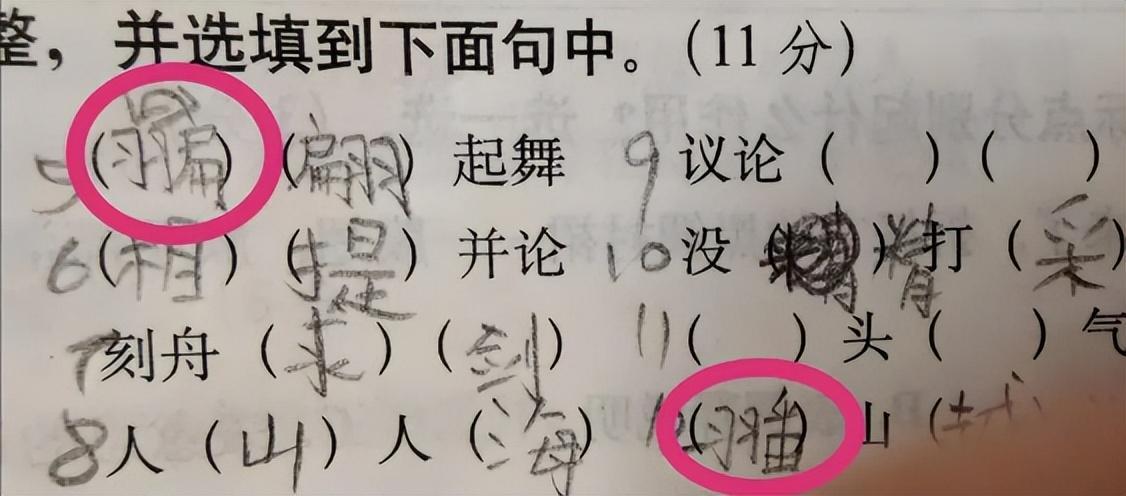 整，并选填到下面句中。(11 分)
5 ( ) (翩) 起舞 9 议论 ( ) ( )
6 (相) (提) 并论 10 没 ( ) 精 打 (采)
7 刻舟 (求) (剑) 11 ( ) 头 ( ) 气
8 人 (山) 人 (海) 12 ( ) 山 (